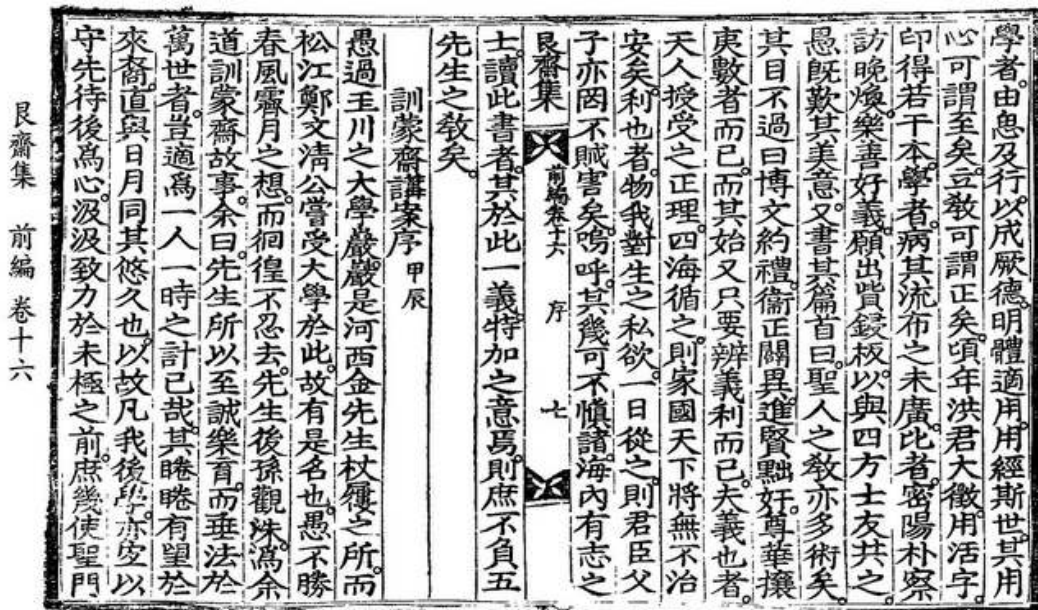 學者。由恖及行。以成厥德。明體適用。用經斯世。其用
心可謂至矣。豆敎可謂正矣。頃年洪君大徵。用活字。
印得若干本。學者。病其流布之未廣。比者。密陽朴察
訪晩煥。樂善好義。願出貲鋟板。以與四方士友共之。
愚旣歎其美意。又書其篇首曰。聖人之敎亦多術矣。
其目不過曰博文約禮。衞正闢異。進賢黜奸。尊華攘
夷數者而已。而其始又只要辨義利而已。夫義也者。
天人授受之正理。四海循之。則家國天下將無不治
安矣。利也者。物我對生之私欲。一日從之。則君臣父
子亦罔不賊害矣。嗚呼。其幾可不愼諸。海內有志之
艮齋集 前編卷十六 序 七
士。讀此書者。其於此一義。特加之意焉。則庶不負五
先生之敎矣。
訓蒙齋講案序 甲辰
愚過玉川之大學巖。巖是河西金先生杖屨之所。而
松江鄭文淸公嘗受大學於此。故有是名也。愚不勝
春風霽月之想。而徊徨不忍去。先生後孫觀洙。爲余
道訓蒙齋故事。余曰。先生所以至誠樂育。而垂法於
萬世者。豈適爲一人一時之計已哉。其睠睠有望於
來裔。直與日月同其悠久也。以故凡我後學。亦宜以
守先待後爲心。汲汲致力於未極之前。庶幾使聖門
艮齋集 前編 卷十六